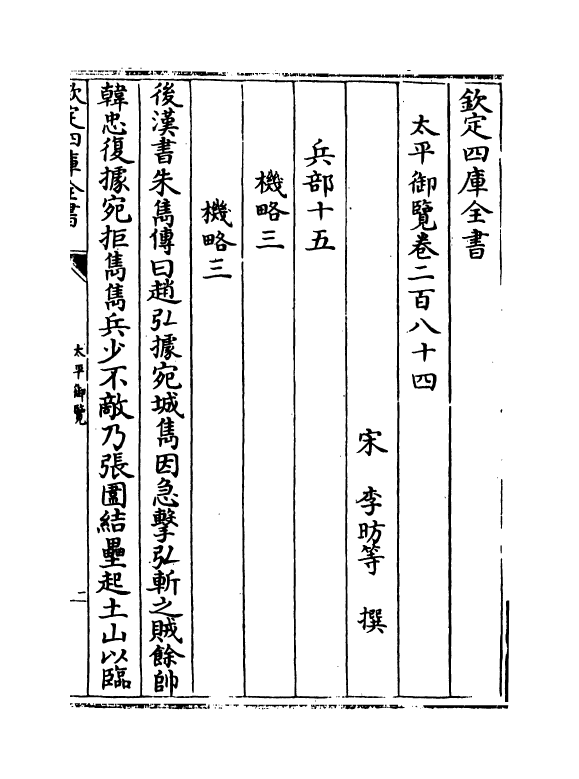 欽定四庫全書
太平御覽卷二百八十四
宋 李昉等 撰
兵部十五
機略三
機略三
後漢書朱雋傳曰趙弘據宛城雋因急擊弘斬之賊餘帥
韓忠復據宛拒雋雋兵少不敵乃張圍結壘起土山以臨
欽定四庫全書
太平御覽
二